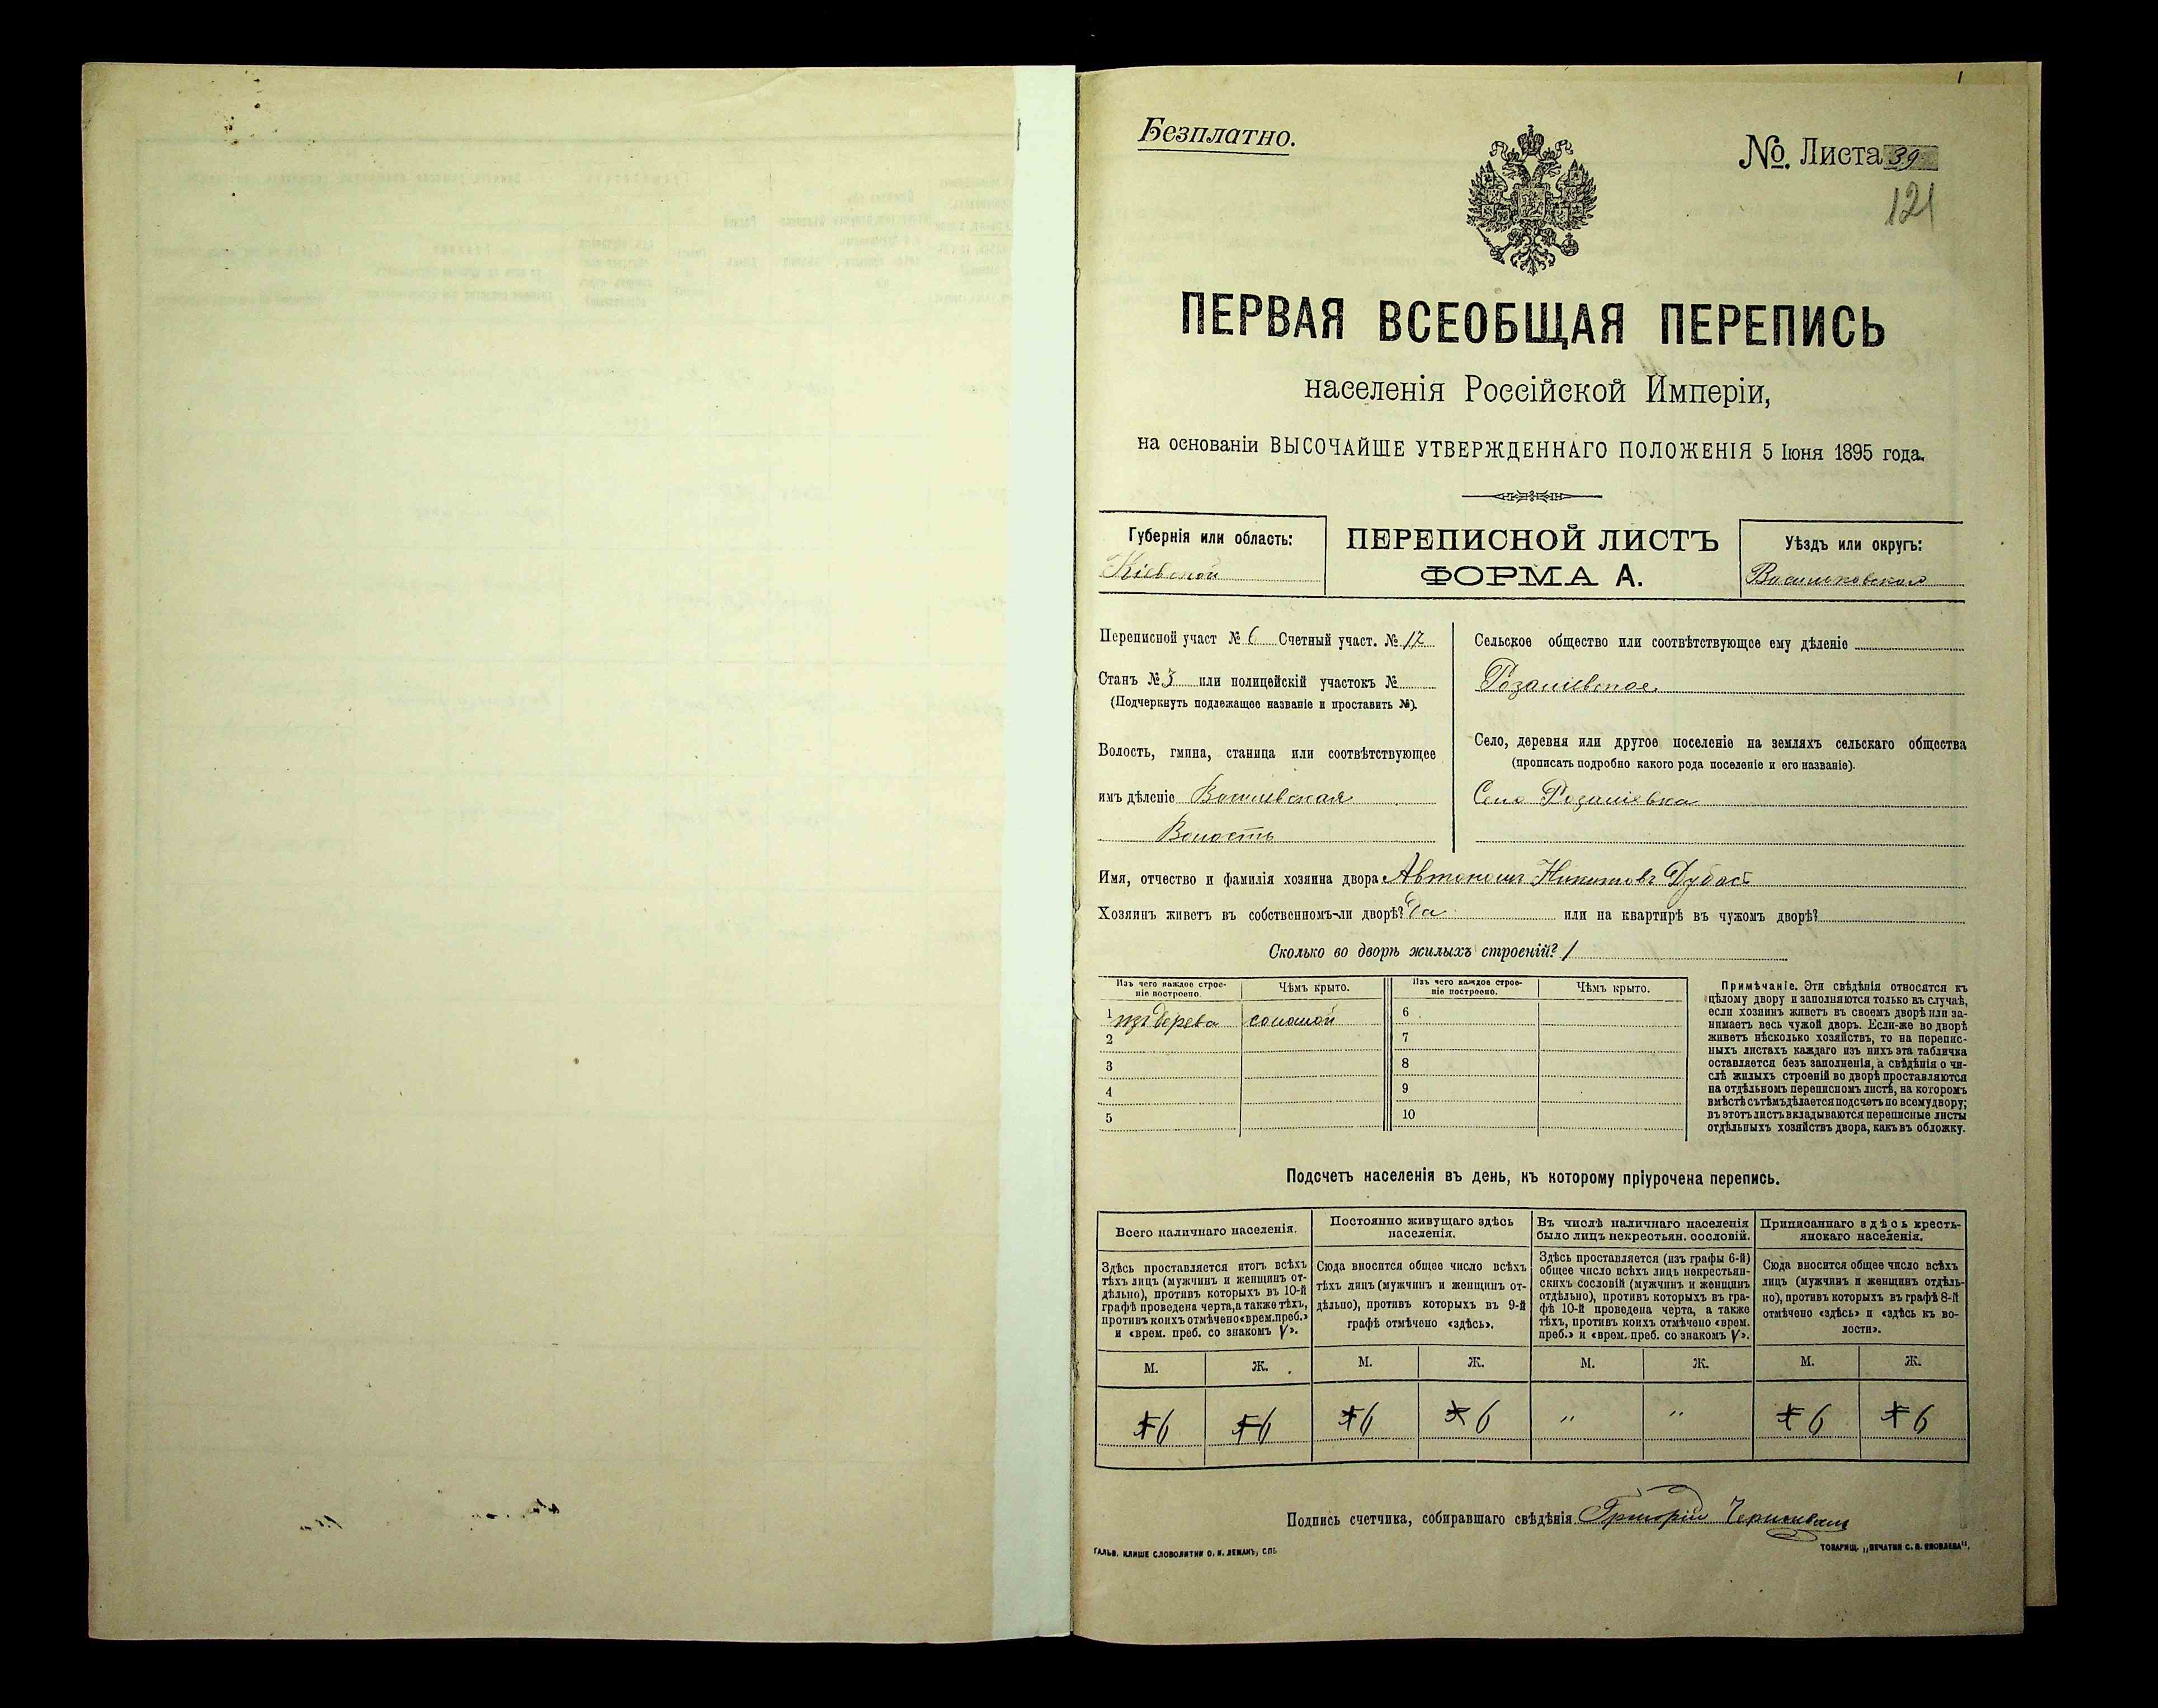 1
Безплатно.
№. Листа 39
121
ПЕРВАЯ ВСЕОБЩАЯ ПЕРЕПИСЬ
населенія Россійской Имперіи,
на основаніи ВЫСОЧАЙШЕ УТВЕРЖДЕННАГО ПОЛОЖЕНІЯ 5 Іюня 1895 года.
Губернія или область:
Кіевской
ПЕРЕПИСНОЙ ЛИСТЪ
ФОРМА А.
Уѣздъ или округъ:
Переписной участ № 6 Счетный участ. № 17
Станъ № 3 или полицейскій участокъ №
(Подчеркнуть подлежащее названіе и проставить №).
Волость, гмина, станица или соотвѣтствующее
имъ дѣленіе
Волость
Сельское общество или соотвѣтствующее ему дѣленіе
Село, деревня или другое поселеніе на земляхъ сельскаго общества
(прописать подробно какого рода поселеніе и его названіе).
Село
Имя, отчество и фамилія хозяина двора Автономъ Никитовъ Дубасъ
Хозяинъ живетъ въ собственномъ-ли дворѣ? Да или на квартирѣ въ чужомъ дворѣ?
Сколько во дворѣ жилыхъ строеній? 1
Изъ чего каждое строе-
ніе построено.
Чѣмъ крыто.
Изъ чего каждое строе-
ніе построено.
Чѣмъ крыто.
1 изъ дерева соломой
2
3
4
5
6
7
8
9
10
Примѣчаніе. Эти свѣдѣнія относятся къ
цѣлому двору и заполняются только въ случаѣ,
если хозяинъ живетъ въ своемъ дворѣ или за-
нимаетъ весь чужой дворъ. Если-же во дворѣ
живетъ нѣсколько хозяйствъ, то на перепис-
ныхъ листахъ каждаго изъ нихъ эта табличка
оставляется безъ заполненія, а свѣдѣнія о чи-
слѣ жилыхъ строеній во дворѣ проставляются
на отдѣльномъ переписномъ листѣ, на которомъ
вмѣстѣ съ тѣмъ дѣлается подсчетъ по всему двору;
въ этотъ листъ вкладываются переписные листы
отдѣльныхъ хозяйствъ двора, какъ въ обложку.
Подсчетъ населенія въ день, къ которому пріурочена перепись.
Всего наличнаго населенія.
Здѣсь проставляется итогъ всѣхъ
тѣхъ лицъ (мужчинъ и женщинъ от-
дѣльно), противъ которыхъ въ 10-й
графѣ проведена черта, а также тѣхъ,
противъ коихъ отмѣчено «врем. преб.»
и «врем. преб. со знакомъ V».
Постоянно живущаго здѣсь
населенія.
Сюда вносится общее число всѣхъ
тѣхъ лицъ (мужчинъ и женщинъ от-
дѣльно), противъ которыхъ въ 9-й
графѣ отмѣчено «здѣсь».
Въ числѣ наличнаго населенія
было лицъ некрестьян. сословій.
Здѣсь проставляется (изъ графы 6-й)
общее число всѣхъ лицъ некрестьян-
скихъ сословій (мужчинъ и женщинъ
отдѣльно), противъ которыхъ въ гра-
фѣ 10-й проведена черта, а также
тѣхъ, противъ коихъ отмѣчено «врем.
преб.» и «врем. преб. со знакомъ V».
Приписаннаго здѣсь кресть-
янскаго населенія.
Сюда вносится общее число всѣхъ
лицъ (мужчинъ и женщинъ отдѣль-
но), противъ которыхъ въ графѣ 8-й
отмѣчено «здѣсь» и «здѣсь къ во-
лости».
М. Ж. М. Ж. М. Ж. М. Ж.
6 6 6 6 " " 6 6
Подпись счетчика, собиравшаго свѣдѣнія Григорій
ГАЛЬВ. КЛИШЕ СЛОВОЛИТНИ О. И. ЛЕМАНЪ, СПБ.
ТОВАРИЩ. „ПЕЧАТНЯ С. П. ЯКОВЛЕВА".